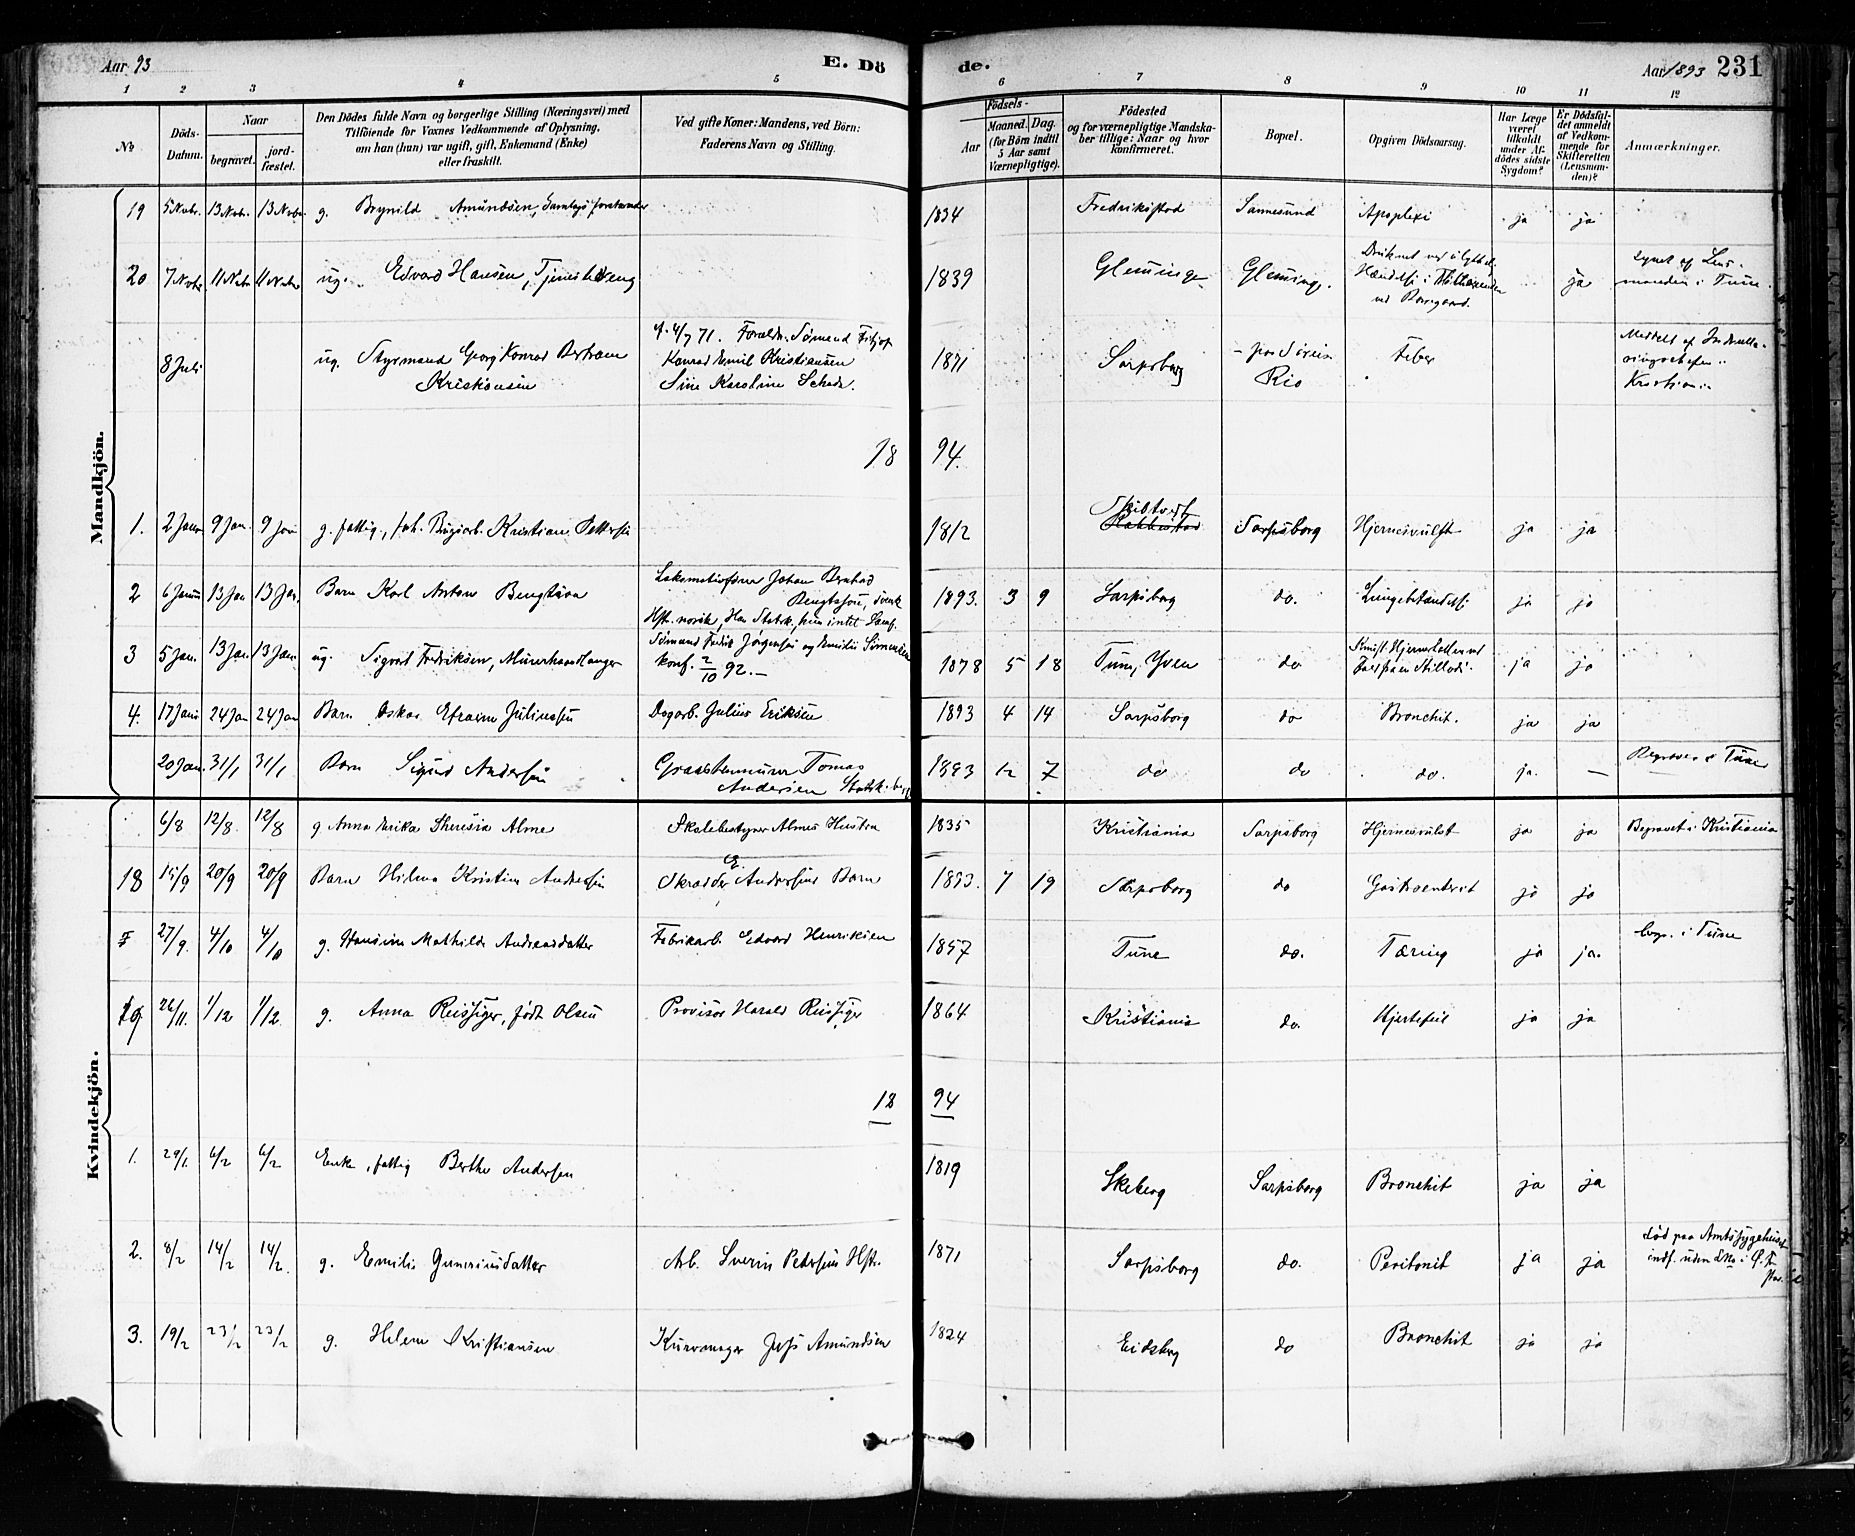 Aar 93
E. Dö
de.
Aar 1893 231
1 2 3 4 5 6 7 8 9 10 11 12
No
Döds-Datum.
Naar
begravet.
jordfæstet.
Den Dödes fulde Navn og borgerlige Stilling (Næringsvei) med
Tilföiende for Voxnes Vedkommende af Oplysning,
om han (hun) var ugift, gift, Enkemand (Enke)
eller fraskilt.
Ved gifte Koner: Mandens, ved Börn:
Faderens Navn og Stilling.
Födsels-
Aar
Maaned. Dag.
(for Börn indtil
5 Aar samt
Værnepligtige).
Födested
og for værnepligtige Mandska-
ber tillige: Naar og hvor
konfirmeret.
Bopæl.
Opgiven Dödsaarsag.
Har Læge
været
tilkaldt
under Af-
dödes sidste
Sygdom?
Er Dödsfal-
det anmeldt
af Vedkom-
mende for
Skifteretten
(Lensman-
den)?
Anmærkninger.
Mandkjön.
19 5 Novbr. 13 Novbr. 13 Novbr. g. Brynild Amundsen, 1834 Fredrikstad Sannesund Apoplexi ja ja
20 7 Novbr. 11 Novbr 11 Novbr ug. Edvard Hansen, Tjenestedreng 1839 Glemminge Glemminge. Druknet ved ulykkel. Hændelse i ja Lensmanden i Tune.
8 Juli ug. Styrmand Georg Konrad Bertram Kristiansen
f. 4/7 71. Foreldre: Sømand Fritjof
Konrad Emil Kristiansen
Sine Karoline Schade.
1871 Sarpsborg Rio Feber
18 94.
1. 2 Janr 9 Jan. 9 Jan g. fattig, Kristian Pettersen 1812 Skibtvet Sarpsborg Hjernesvulst ja ja
2 6 Januar 13 Jan 13 Jan. Barn Karl Anton Bengtson
Lokomotivfører Johan Bernhard
Bengtsson, svensk
Hst. norsk, Han Statsk., hun intet Samf.
1893. 3 9 Sarpsborg do. Lungebetændelse ja ja
3 5 Jan. 13 Jan 13 Jan. ug. Sigvart Fredriksen, Murerhaandlanger
Sømand Fredrik Jørgensen og Emilie Simensen
konf. 2/10 92.
1878 5 18 Tune, Yven do ja ja
4. 17 Janr 24 Jan 24 Jan Barn Oskar Efraim Juliussen Dagarb. Julius Eriksen 1893 4 14 Sarpsborg do Bronchit. ja ja
20 Jan. 31/1 31/1 Barn Sigurd Andersen Graastensmurer Tomas Andersen 1893 1/2 7 do do do. ja. — Begraves i Tune
Kvindekjön.
6/8 12/8. 12/8 g Anna Erika Theresia Alme Skolebestyrer Almes Hustru 1835 Kristiania Sarpsborg Hjernesvulst ja ja Begravet i Kristiania
18 15/9 20/9 20/9 Barn Hilma Kristine Andersen Skrædder E. Andersens Barn 1893. 7 19 Sarpsborg do Gastroenterit ja ja
27/9. 4/10 4/10 g. Hansine Mathilde Andreasdatter Fabrikarb. Edvard Henriksen 1857 Tune do. Tæring ja ja. begr. i Tune
19 26/11. 1/12 1/12. g. Anna Reissiger, født Olsen Provisor Harald Reissiger 1864 Kristiania do. Hjertefeil ja ja
18 94
1. 29/1. 6/2 6/2 Enke, fattig Berthe Andersen 1819 Skeberg Sarpsborg Bronchit ja ja
2. 8/2 14/2 14/2. g. Emilie Guneriusdatter Arb. Sverin Petersens Hstr. 1871 Sarpsborg do. Peritonit ja ja død paa Amtssygehuset
3. 19/2 23/2 23/2 g. Helene Kristiansen Kurvmager Jens Amundsen 1824 Eidsberg do Bronchit ja ja